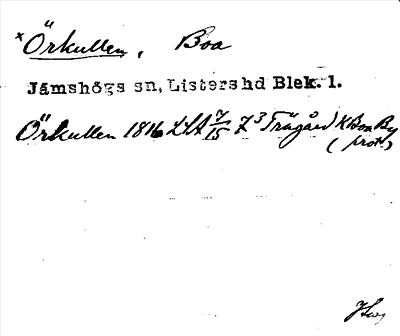 × Örkullen, Boa
Jämshögs sn, Listers hd Blek. l.
Örkullen 1816 LSA 7/15 Z3 Trägård K Boa By
(prot)